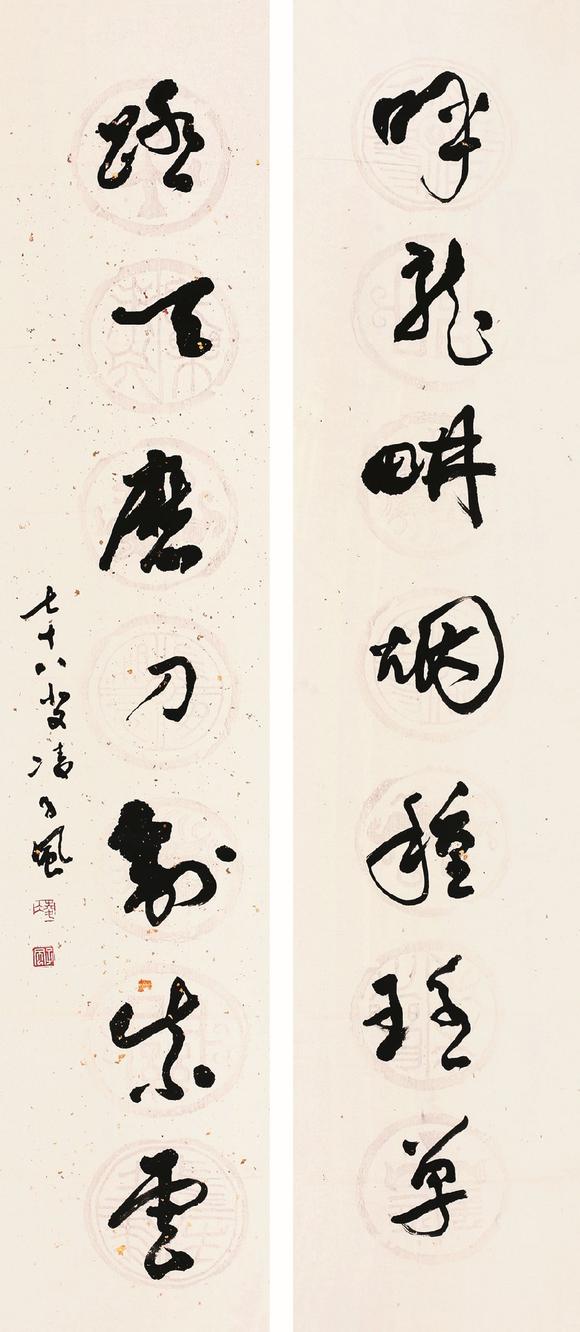 呼龍畊烟種瑶草
踏天磨刀割紫雲
七十八叟凌子風